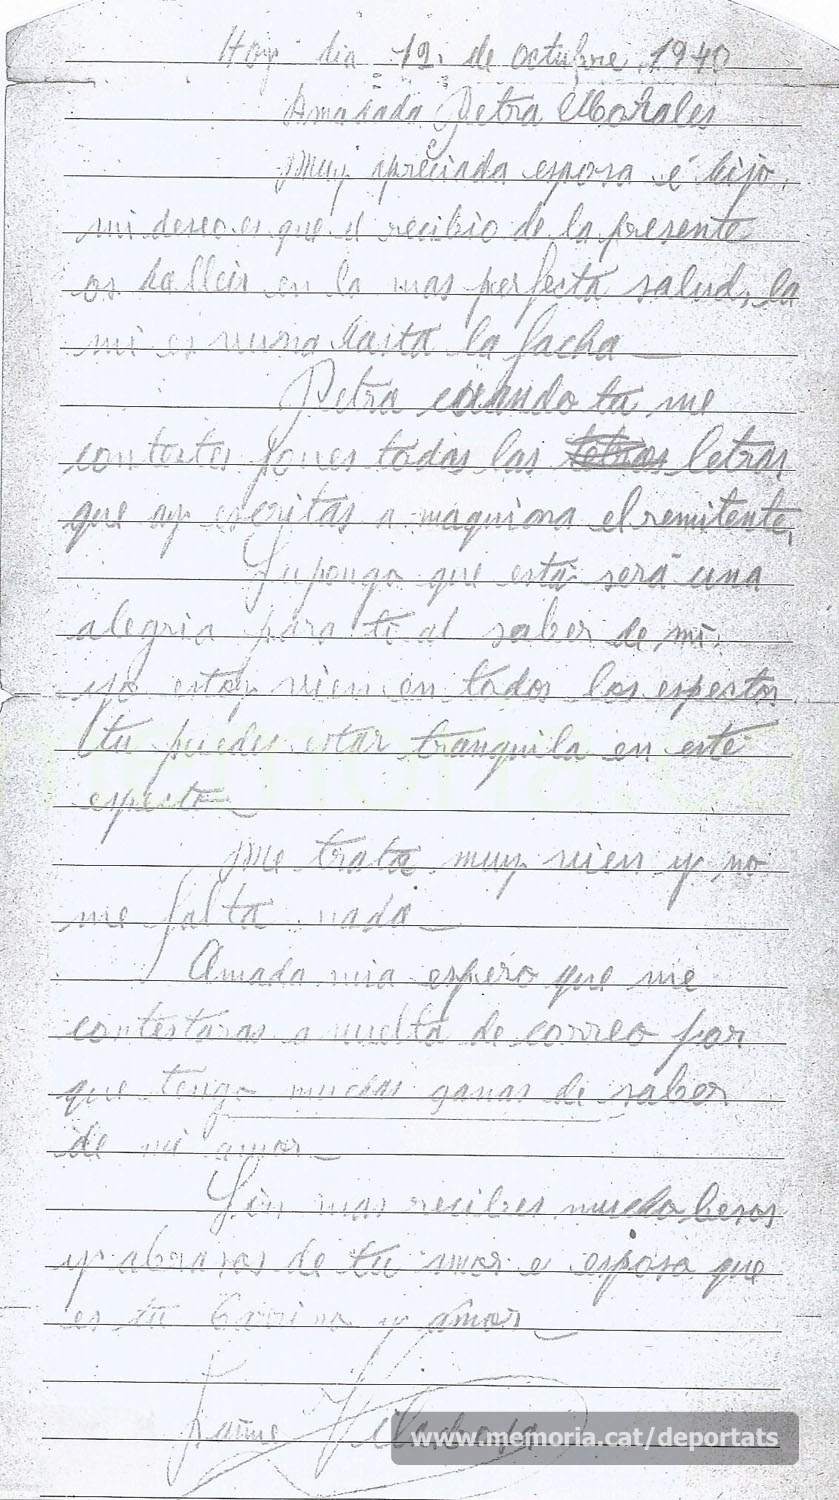 Hoy dia 12 de octubre 1940
Amadada Petra Morales
Muy apreciada esposa é hijo.
mi deseo es que el recibio de la presente
os halleis en la mas perfecta salud, la
mi es vuena hasta la facha
Petra cuando tu me
contestes pones todas las letras
que ay escritas a maquiona el remitente,
Supongo que esta será una
alegria para ti al saber de mi.
yo estoy vien en todos los espectos
tu puedes estar tranquila en este
especto
Me trata muy vien y no
me falta nada
Amada mia espero que me
contestaras a vuelta de correo por
que tengo muchas ganas de saber
de mi amor
Sin mas recibes mucho besos
y abrasos de tu amor e esposo que
es tu Carrino y amor
Jaime Vilabosa
www.memoria.cat/deportats
memoria.cat